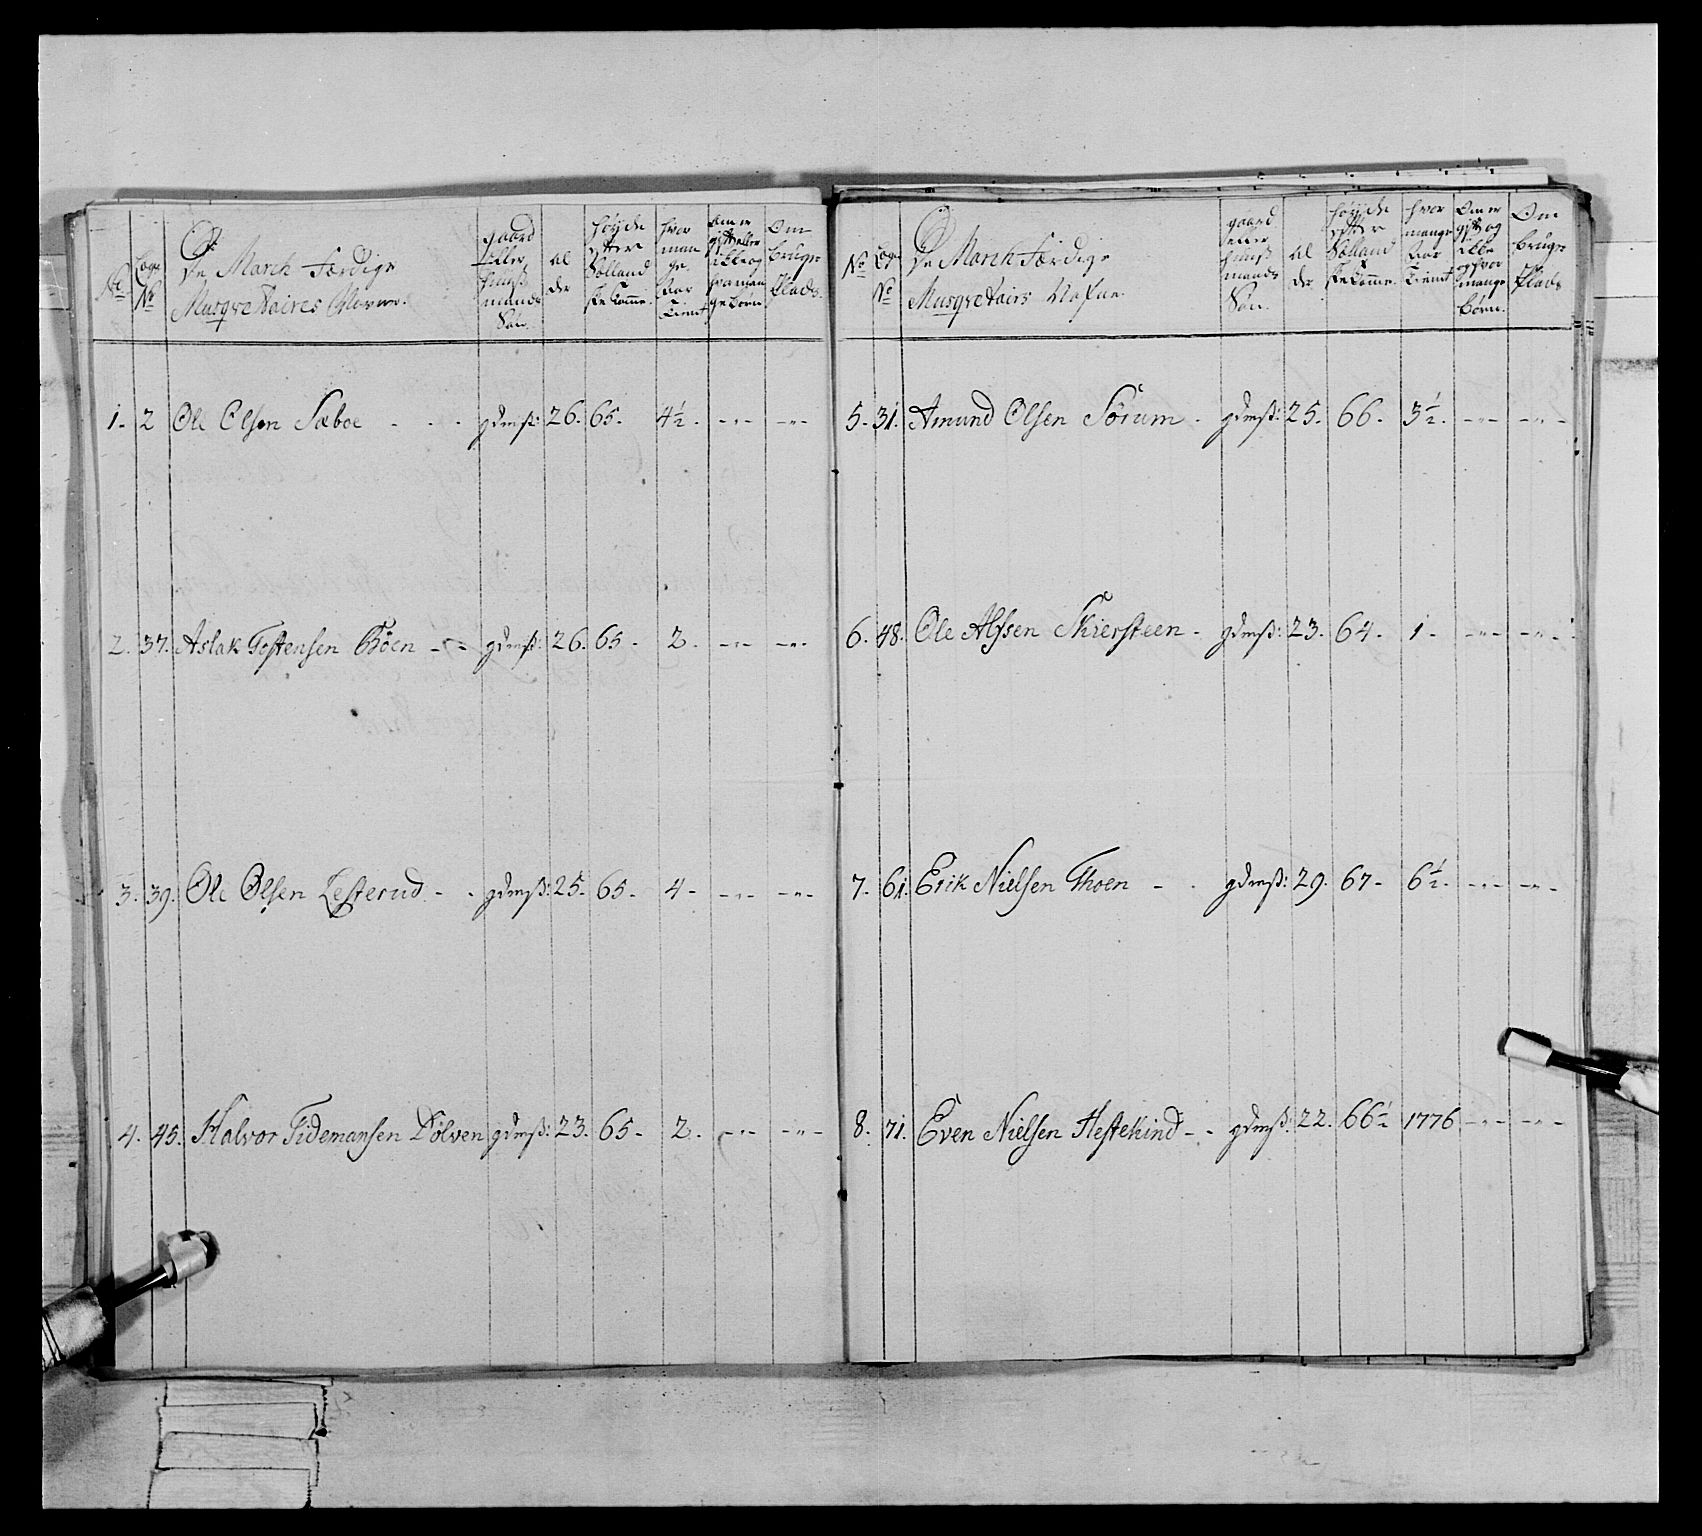 No
Logs No
De March Færdige Musqvetaires Navne.
gaard eller huuß mands Søn.
al der
høyde efter Sølland ske Tomme.
hvor man ge Aar Tient
Om er gift eller ikke og hva man ge børn.
Om bruger Plads.
1. 2 Ole Olsen Sæboe - - - gdmß: 26. 65. 4½. -"- -"-
2. 37. Aslak Tostensen Böen - - gdmß: 26. 65 - 2. -"- -"-
3. 39. Ole Olsen Lesterud - - gdmß: 25. 65 - 4 - -"- -"-
4. 45. Halvor Tidemansen Dölven gdmß: 23. 65 - 2. -"- -"-
No
Logs No
De March Færdige Musqvetairs Nafne.
gaard eller huuß mands Søn.
al der
høyde efter Sølland ske Tomme.
hvor mange Aar Tient
Om er gift og ikke og hvor mange børn.
Om bruger Plads
5. 31. Amund Olsen Sörum - gdmß: 25. 66. 3½. -"- -"-
6. 48. Ole Alfsen Skiersteen - gdmß: 23. 64. 1 - -"- -"-
7. 61. Erik Nielsen Thoen - - gdmß: 29. 67 - 6½. -"- -"-
8. 71. Even Nielsen Hestekind - - gdmß: 22. 66½ 1776 -"- -"-